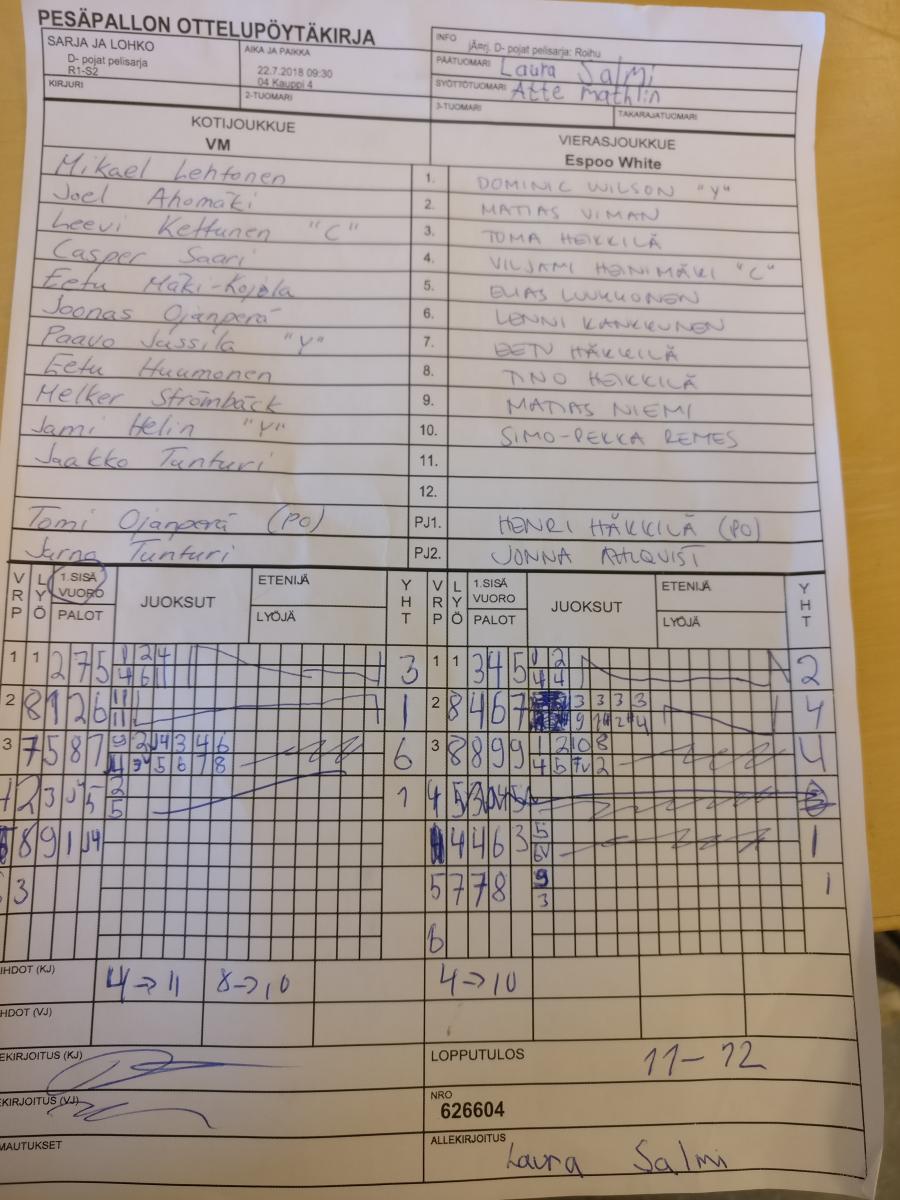 PESÄPALLON OTTELUPÖYTÄKIRJA
SARJA JA LOHKO
D- pojat pelisarja
R1-S2
AIKA JA PAIKKA
22.7.2018 09:30
04 Kauppi 4
INFO
jÄ¤rj. D- pojat pelisarja: Roihu
PÄÄTUOMARI Laura Salmi
SYÖTTÖTUOMARI Atte Mathlin
KIRJURI
2-TUOMARI
3-TUOMARI
TAKARAJATUOMARI
KOTIJOUKKUE
VM
VIERASJOUKKUE
Espoo White
Mikael Lehtonen 1. DOMINIC WILSON "Y"
Joel Ahomäki 2. MATIAS VIMAN
Leevi Kettunen "C" 3. TOMA HEIKKILÄ
Casper Saari 4. VILJAMI HEINIMÄKI "C"
Eetu Mäki-Kojola 5. ELIAS LUUKKONEN
Joonas Ojanperä 6. LENNI KANKKUNEN
Paavo Jussila "Y" 7. EETU HÄKKILÄ
Eetu Huumonen 8. TINO HEIKKILÄ
Melker Strömbäck 9. MATIAS NIEMI
Jami Helin "Y" 10. SIMO-PEKKA REMES
Jaakko Tunturi 11.
12.
Tomi Ojanperä (PO) PJ1. HENRI HÄKKILÄ (PO)
Jarna Tunturi PJ2. JONNA AHLQVIST
VRP LYÖ 1.SISÄ VUORO PALOT JUOKSUT ETENIJÄ LYÖJÄ YHT VRP LYÖ 1.SISÄ VUORO PALOT JUOKSUT ETENIJÄ LYÖJÄ YHT
1 1 2 7 5 1 2 4 3 1 1 3 4 5 1 2 2
4 6 11 4 4
2 8 1 2 6 11 1 2 8 4 6 7 3 3 3 3 4
11
3 7 5 8 7 9 2 4 3 4 6 6 3 8 8 9 9 1 2 10 8 4
5 6 7 8 4 5 7V 2
2 3 5 2 1 4 5
5
8 9 1 4 4 4 6 3 5 1
6V
3 5 7 7 8 9 1
3
6
IHDOT (KJ) 4→11 8→10 4→10
HDOT (VJ)
EKIRJOITUS (KJ)
LOPPUTULOS 11-12
EKIRJOITUS (VJ)
NRO
626604
MAUTUKSET
ALLEKIRJOITUS Laura Salmi